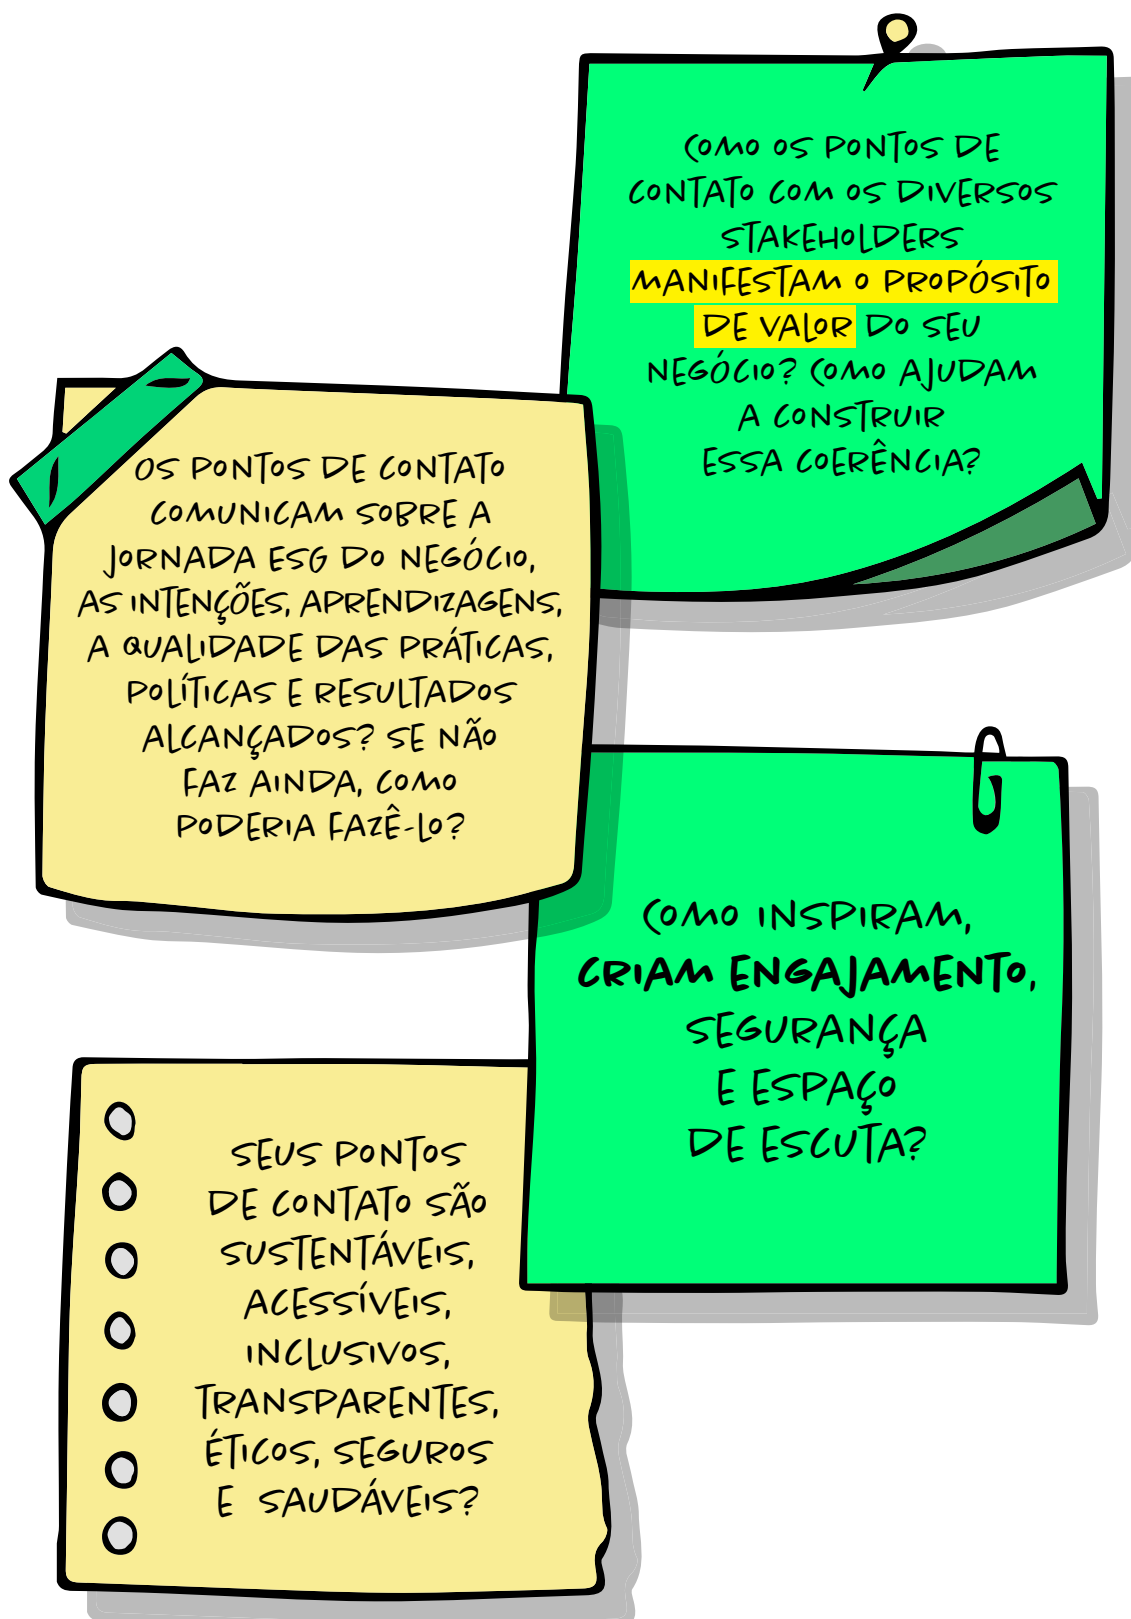 COMO OS PONTOS DE
CONTATO COM OS DIVERSOS
STAKEHOLDERS
MANIFESTAM O PROPÓSITO
DE VALOR DO SEU
NEGÓCIO? COMO AJUDAM
A CONSTRUIR
ESSA COERÊNCIA?
OS PONTOS DE CONTATO
COMUNICAM SOBRE A
JORNADA ESG DO NEGÓCIO,
AS INTENÇÕES, APRENDIZAGENS,
A QUALIDADE DAS PRÁTICAS,
POLÍTICAS E RESULTADOS
ALCANÇADOS? SE NÃO
FAZ AINDA, COMO
PODERIA FAZÊ-LO?
COMO INSPIRAM,
CRIAM ENGAJAMENTO,
SEGURANÇA
E ESPAÇO
DE ESCUTA?
SEUS PONTOS
DE CONTATO SÃO
SUSTENTÁVEIS,
ACESSÍVEIS,
INCLUSIVOS,
TRANSPARENTES,
ÉTICOS, SEGUROS
E SAUDÁVEIS?